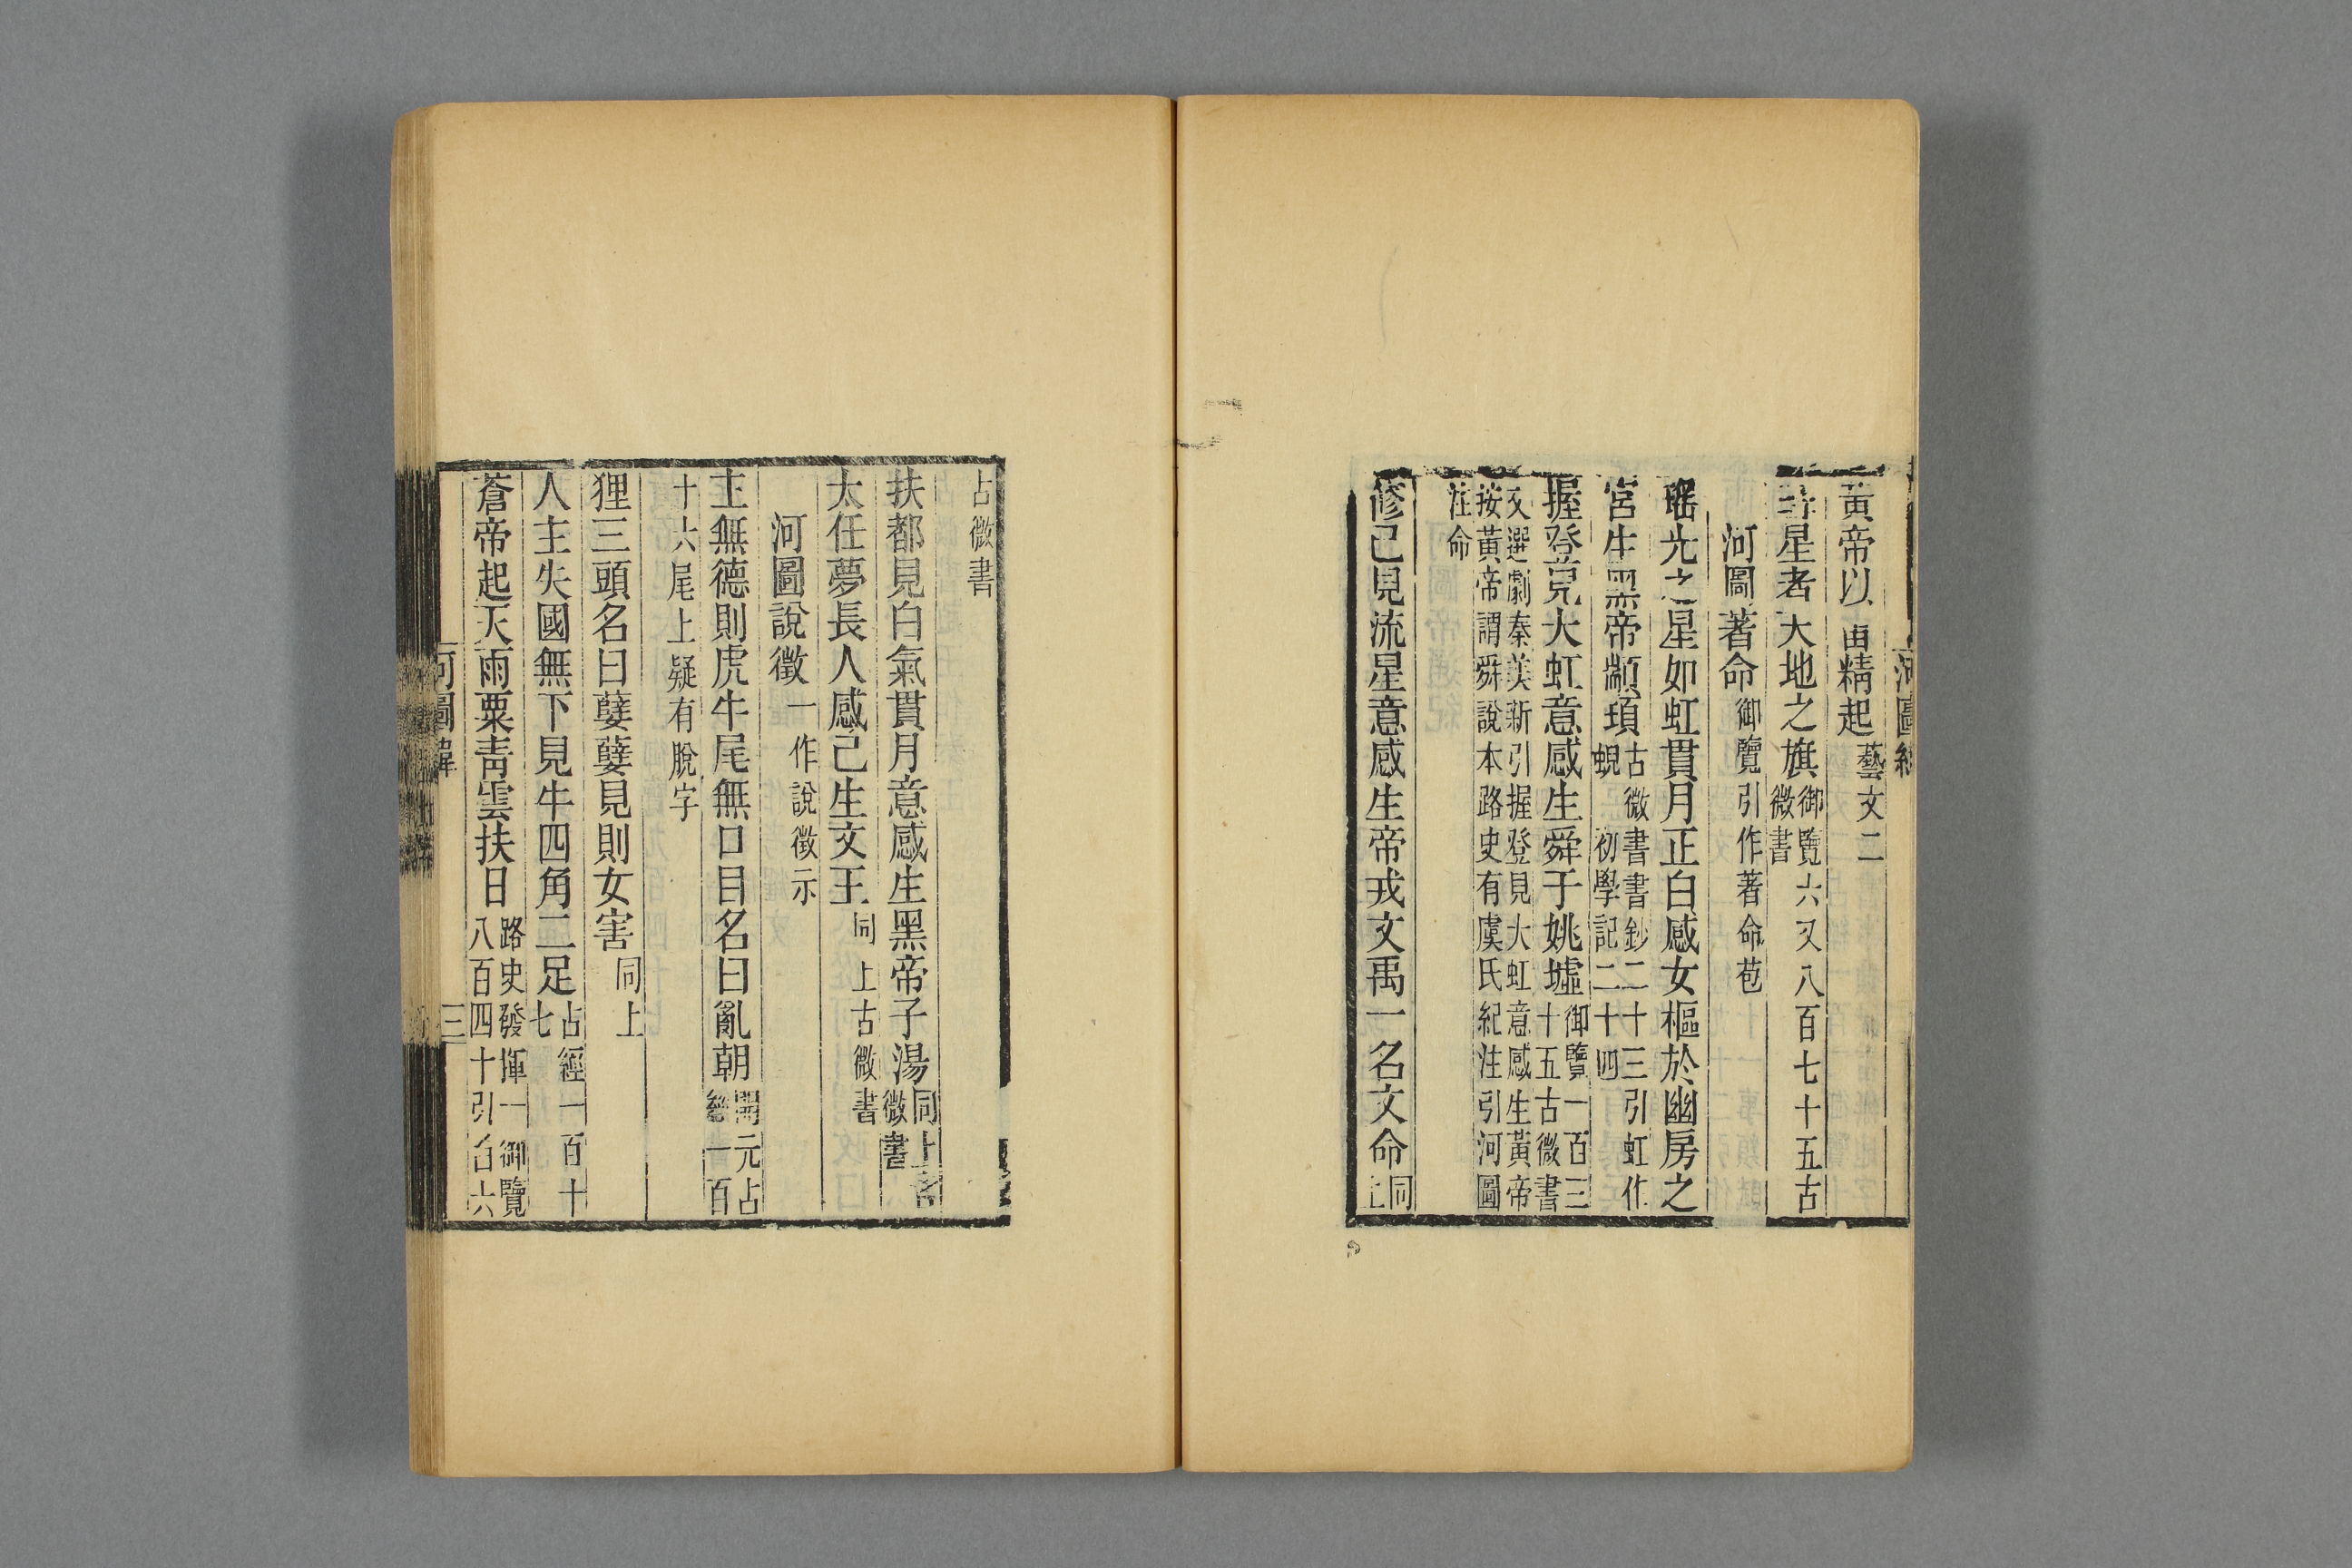 河圖緯
黃帝以雷精起藝文二
彗星者天地之旗御覽六又八百七十五古微書
河圖著命御覽引作著命苞
瑤光之星如虹貫月正白感女樞於幽房之
宮生黑帝顓頊古微書書鈔二十三引虹作蜺初學記二十四
握登見大虹意感生舜于姚墟御覽一百三十五古微書
文選劇秦美新引握登見大虹意感生黃帝按黃帝謂舜說本路史有虞氏紀注引河圖
注命
修己見流星意感生帝戎文禹一名文命同上
占微書
扶都見白氣貫月意感生黑帝子湯同上古微書
太任夢長人感己生文王同上古微書
河圖說徵一作說徵示
主無德則虎牛尾無口目名曰亂朝開元占經一百
十六尾上疑有脫字
狸三頭名曰孽孽見則女害同上
人主失國無下見牛四角二足占經一百十七
蒼帝起天雨粟靑雲扶日路史發揮一御覽八百四十引白六
河圖緯
三